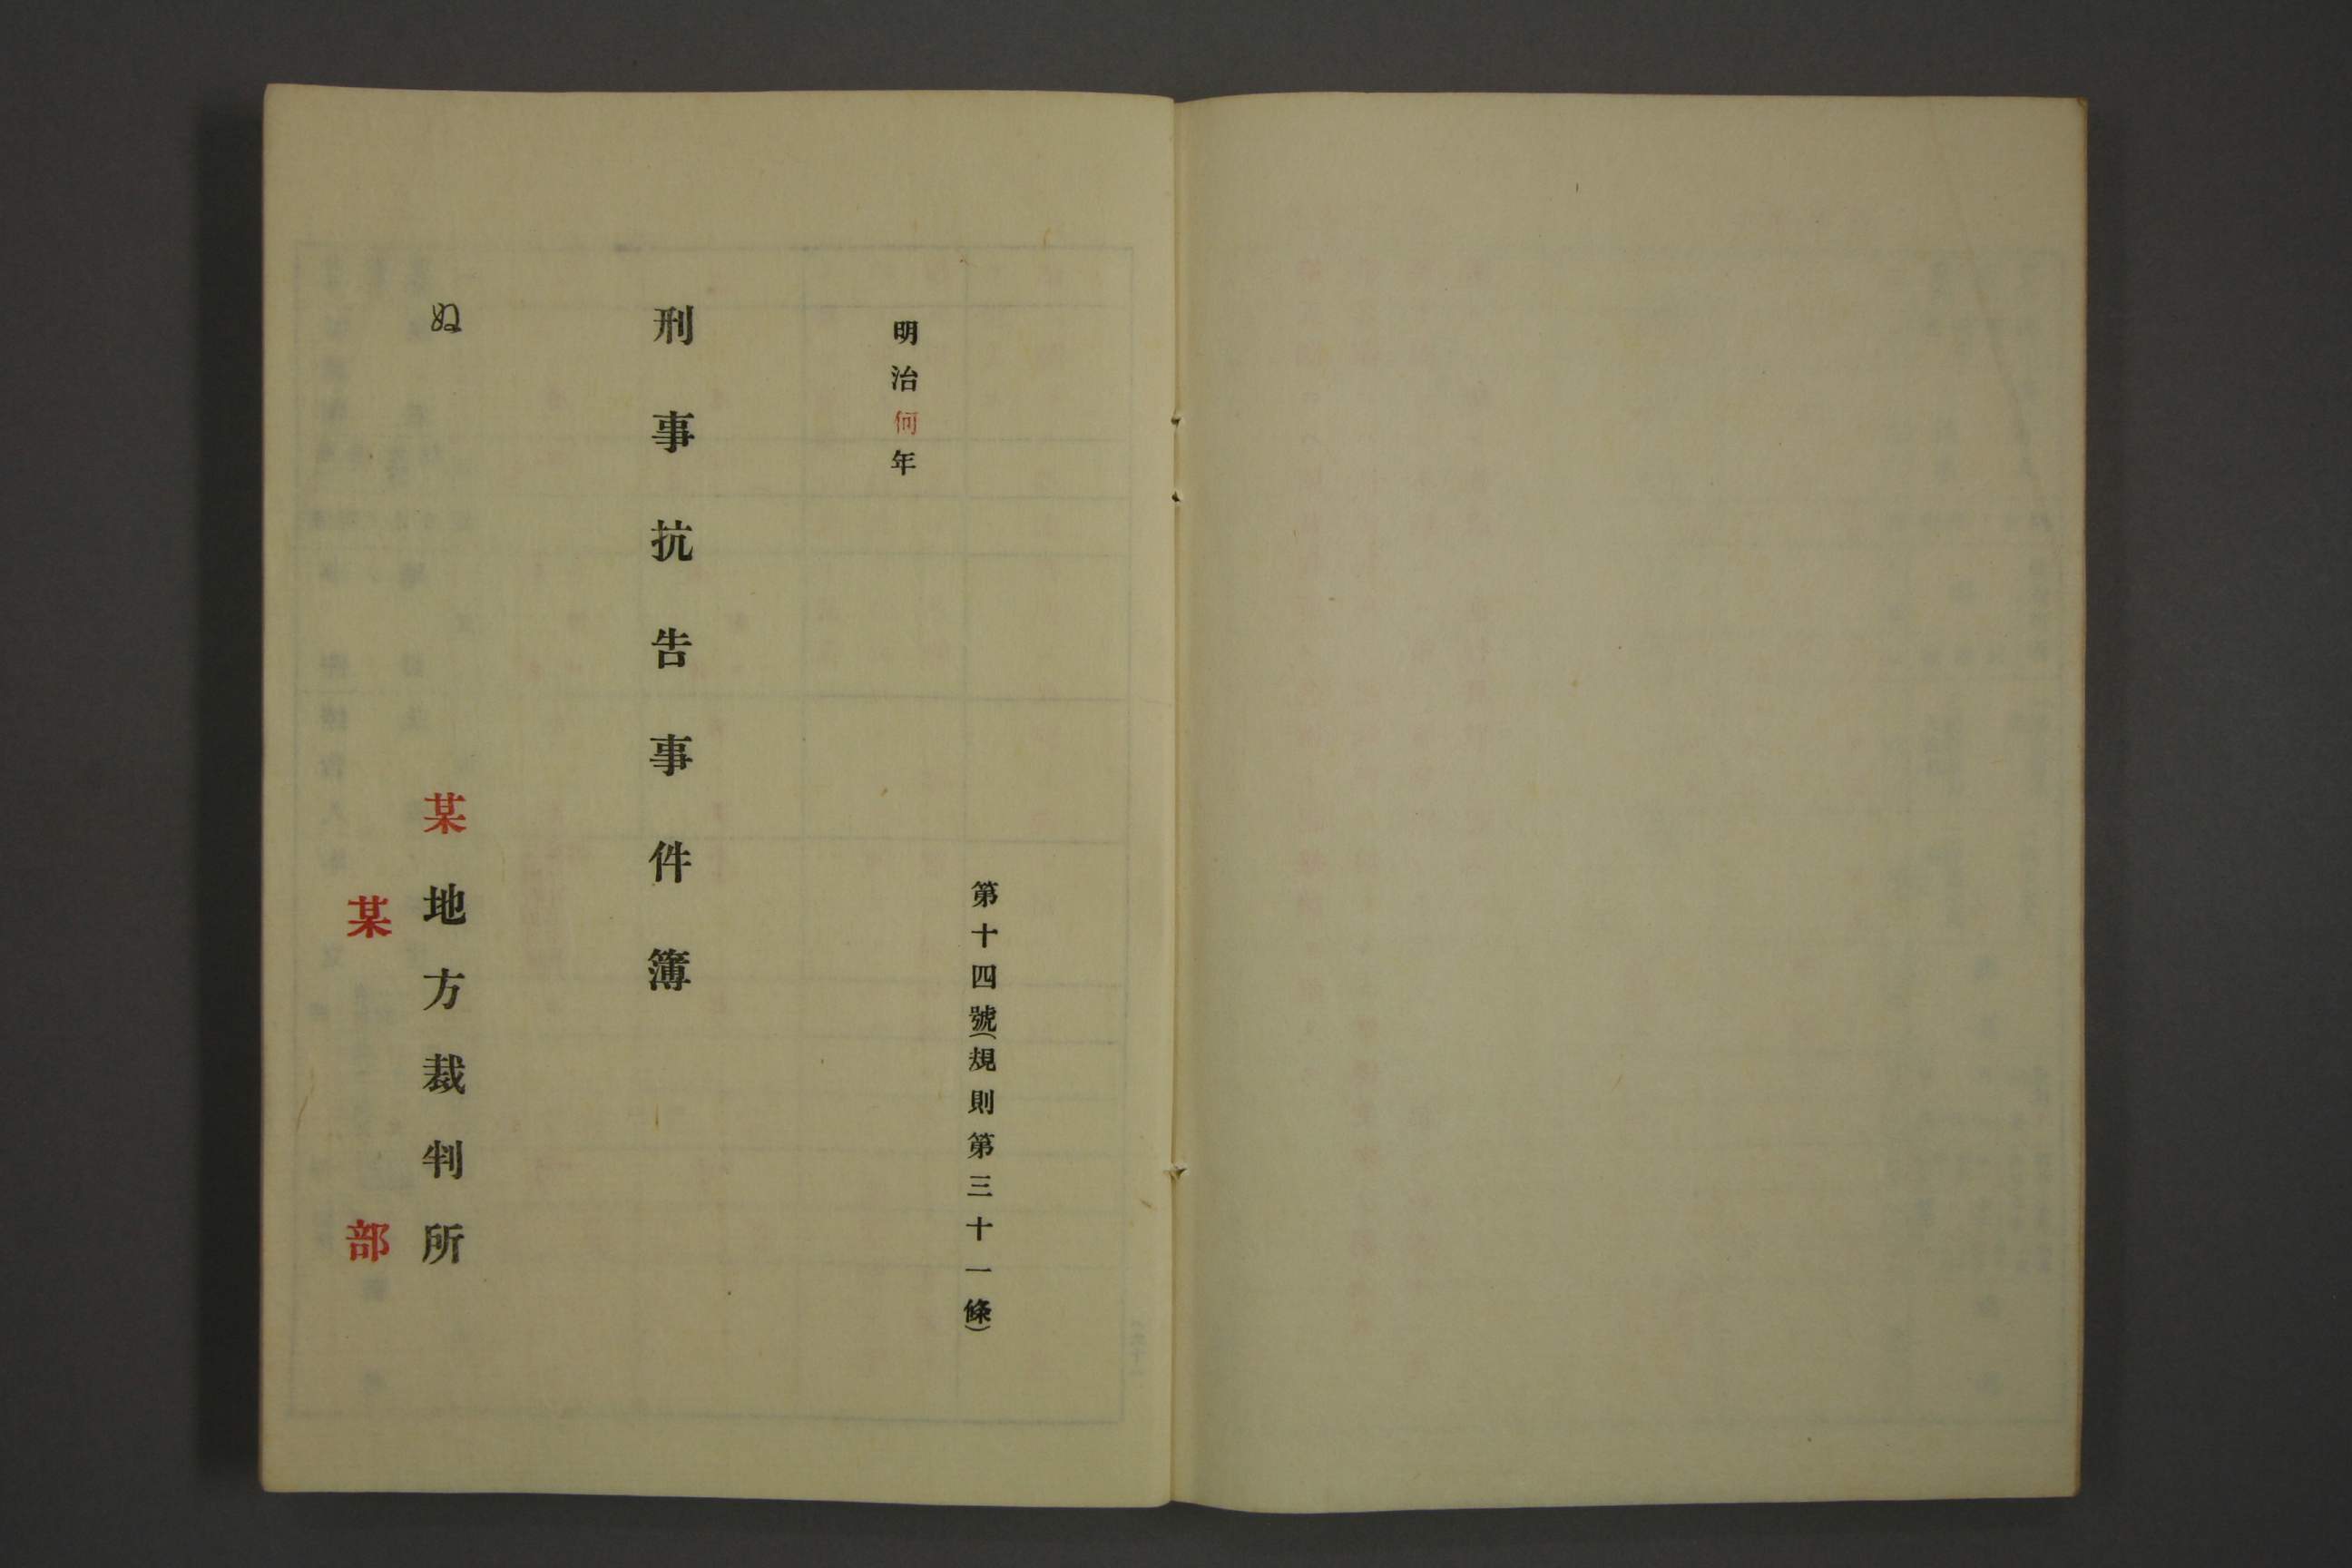 第十四號(規則第三十一條)
明治何年
刑事抗告事件簿
ぬ
某地方裁判所
某部